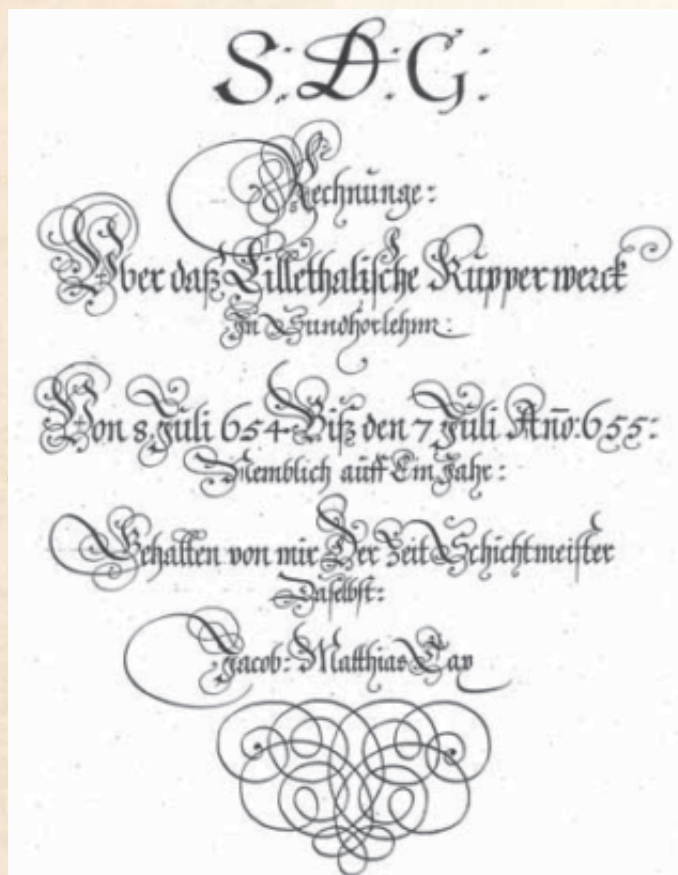 S: D: G:
Rechnunge:
Vber daß Lillethalische Kupper werck
In Sundhorlehnn:
Von 8 Juli 654 Biß den 7 Juli Año: 655:
Nemblich auff Ein Jahr:
Gehalten von mir Der Zeit Schichtmeister
Daselbst:
Jacob: Matthias